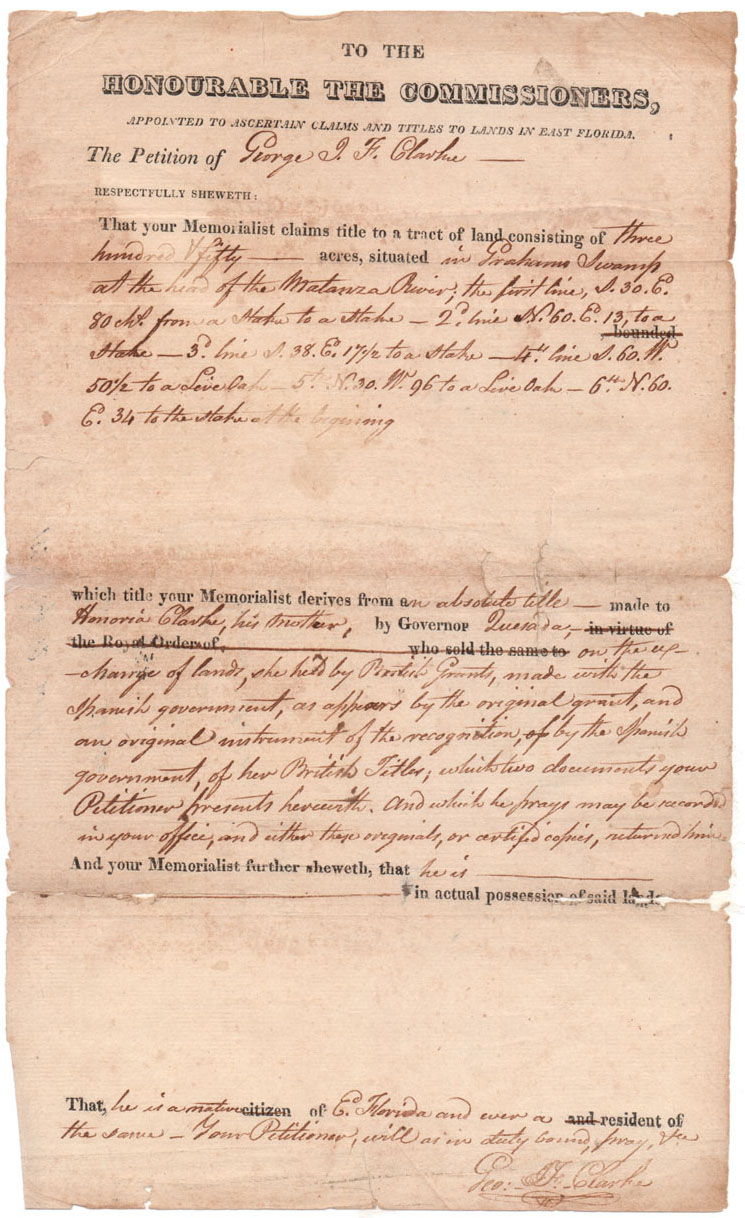 TO THE
HONOURABLE THE COMMISSIONERS,
APPOINTED TO ASCERTAIN CLAIMS AND TITLES TO LANDS IN EAST FLORIDA.
The Petition of George J. F. Clarke —
RESPECTFULLY SHEWETH:
That your Memorialist claims title to a tract of land consisting of three
hundred & fifty — acres, situated in Grahams Swamp
at the head of the Matanza River; the first line, S. 30. E.
80 chs. from a Stake to a stake — 2d. line N. 60. E. 13, to a
bounded
Stake — 3d. line S. 38. E. 17 1/2 to a stake — 4th line S. 60. W.
50 1/2 to a Live Oak — 5th N. 30. W. 96 to a Live Oak — 6th N. 60.
E. 34 to the stake at the begining
which title your Memorialist derives from an absolute title — made to
Honoria Clarke, his mother, by Governor Quesada, in virtue of
the Royal Order of, who sold the same to on the ex-
-change of lands, she held by British Grants, made with the
Spanish government, as appears by the original grant, and
an original instrument of the recognition, of by the Spanish
government, of her British Titles; which two documents your
Petitioner presents herewith. And which he prays may be recorded
in your office, and either these originals, or certified copies, returned him.
And your Memorialist further sheweth, that he is
in actual possession of said lands
That, he is a native citizen of E. Florida and ever a and resident of
the same — Your Petitioner, will as in duty bound, pray, &c
Geo: J. F. Clarke